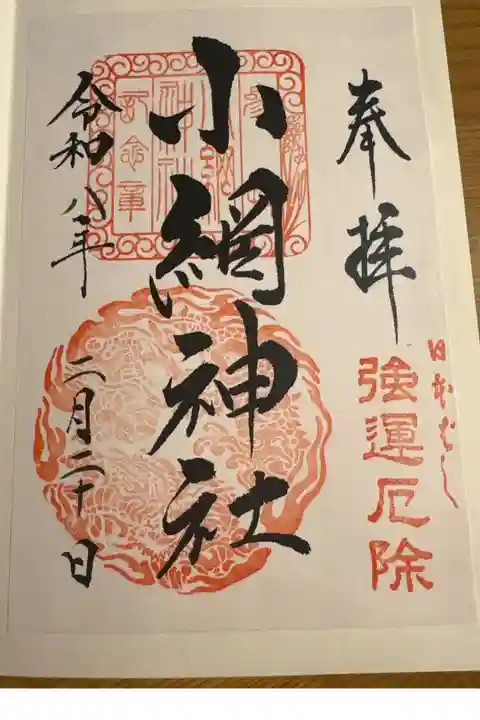 奉拝
日本ばし
強運厄除
小網神社
令和八年
二月二十日